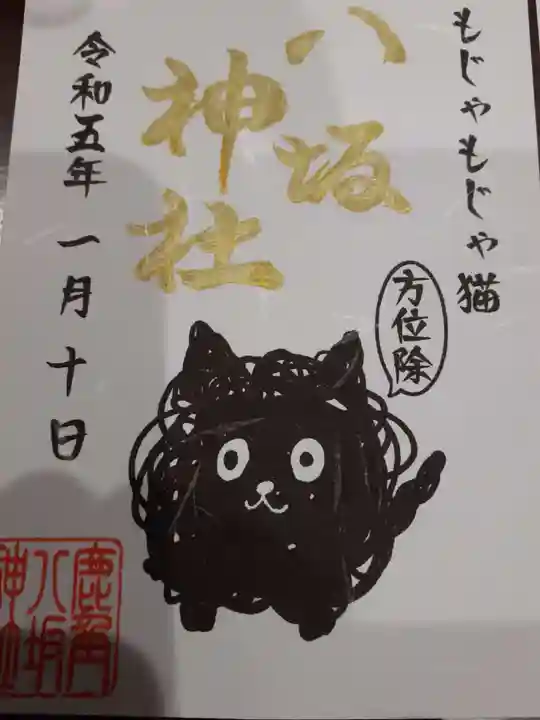 もじゃもじゃ猫
八坂
神社
方位除
令和五年一月十日
鹿角
八坂
神社